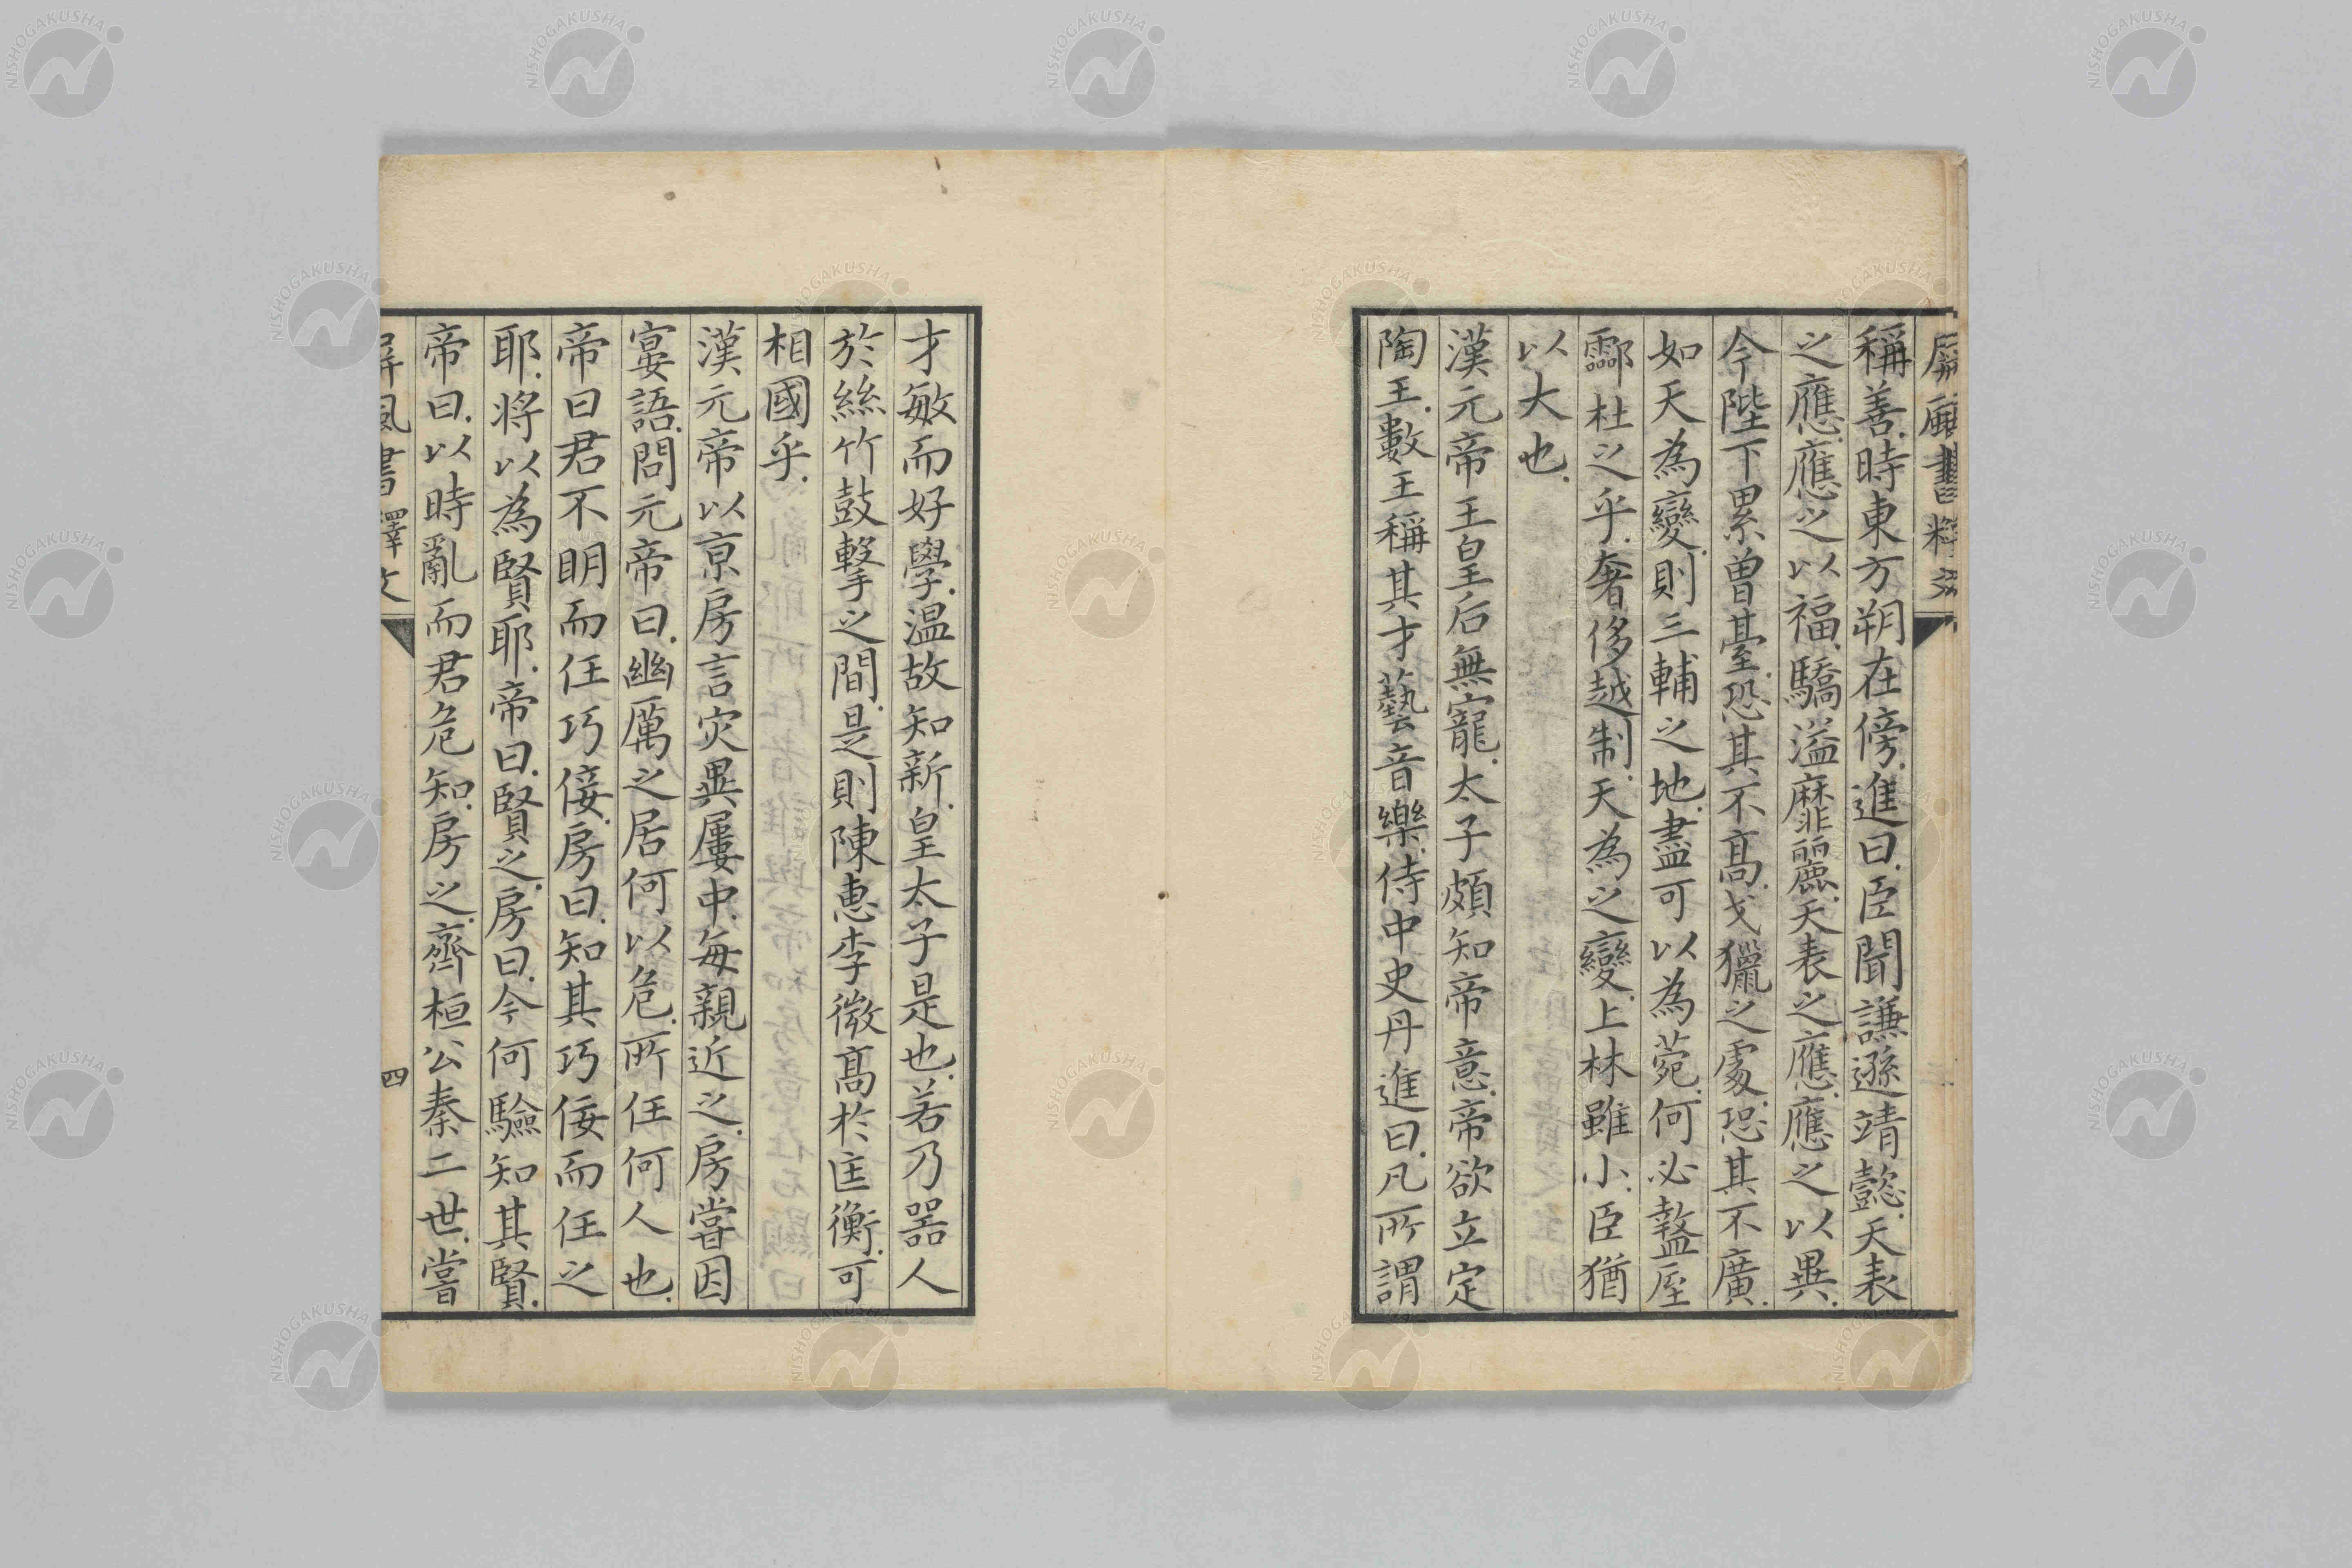 屏風書釋文
稱善.時東方朔在傍.進曰.臣聞謙遜靖懿.天表
之應.應之以福.驕溢靡麗.天表之應.應之以異.
今陛下累曽臺.恐其不髙.弋獵之處.恐其不廣.
如天為變.則三輔之地.盡可以為菀.何必盩厔
鄠杜之乎.奢侈越制.天為之變.上林雖小.臣猶
以大也.
漢元帝王皇后無寵.太子頗知帝意.帝欲立定
陶王.數王稱其才藝音樂.侍中史丹進曰.凡所謂
才敏而好學.温故知新.皇太子是也.若乃器人
於絲竹鼓擊之間.是則陳惠李微髙於匡衡.可
相國乎.
漢元帝以京房言灾異屢中.每親近之.房嘗因
宴語.問元帝曰.幽厲之居何以危.所任何人也.
帝曰君不明而任巧佞.房曰.知其巧佞而任之
耶.将以為賢耶.帝曰.賢之.房曰.今何驗知其賢.
帝曰.以時亂而君危知.房之.齊桓公秦二世.嘗
屏風書釋文
四
NISHOGAKUSHA